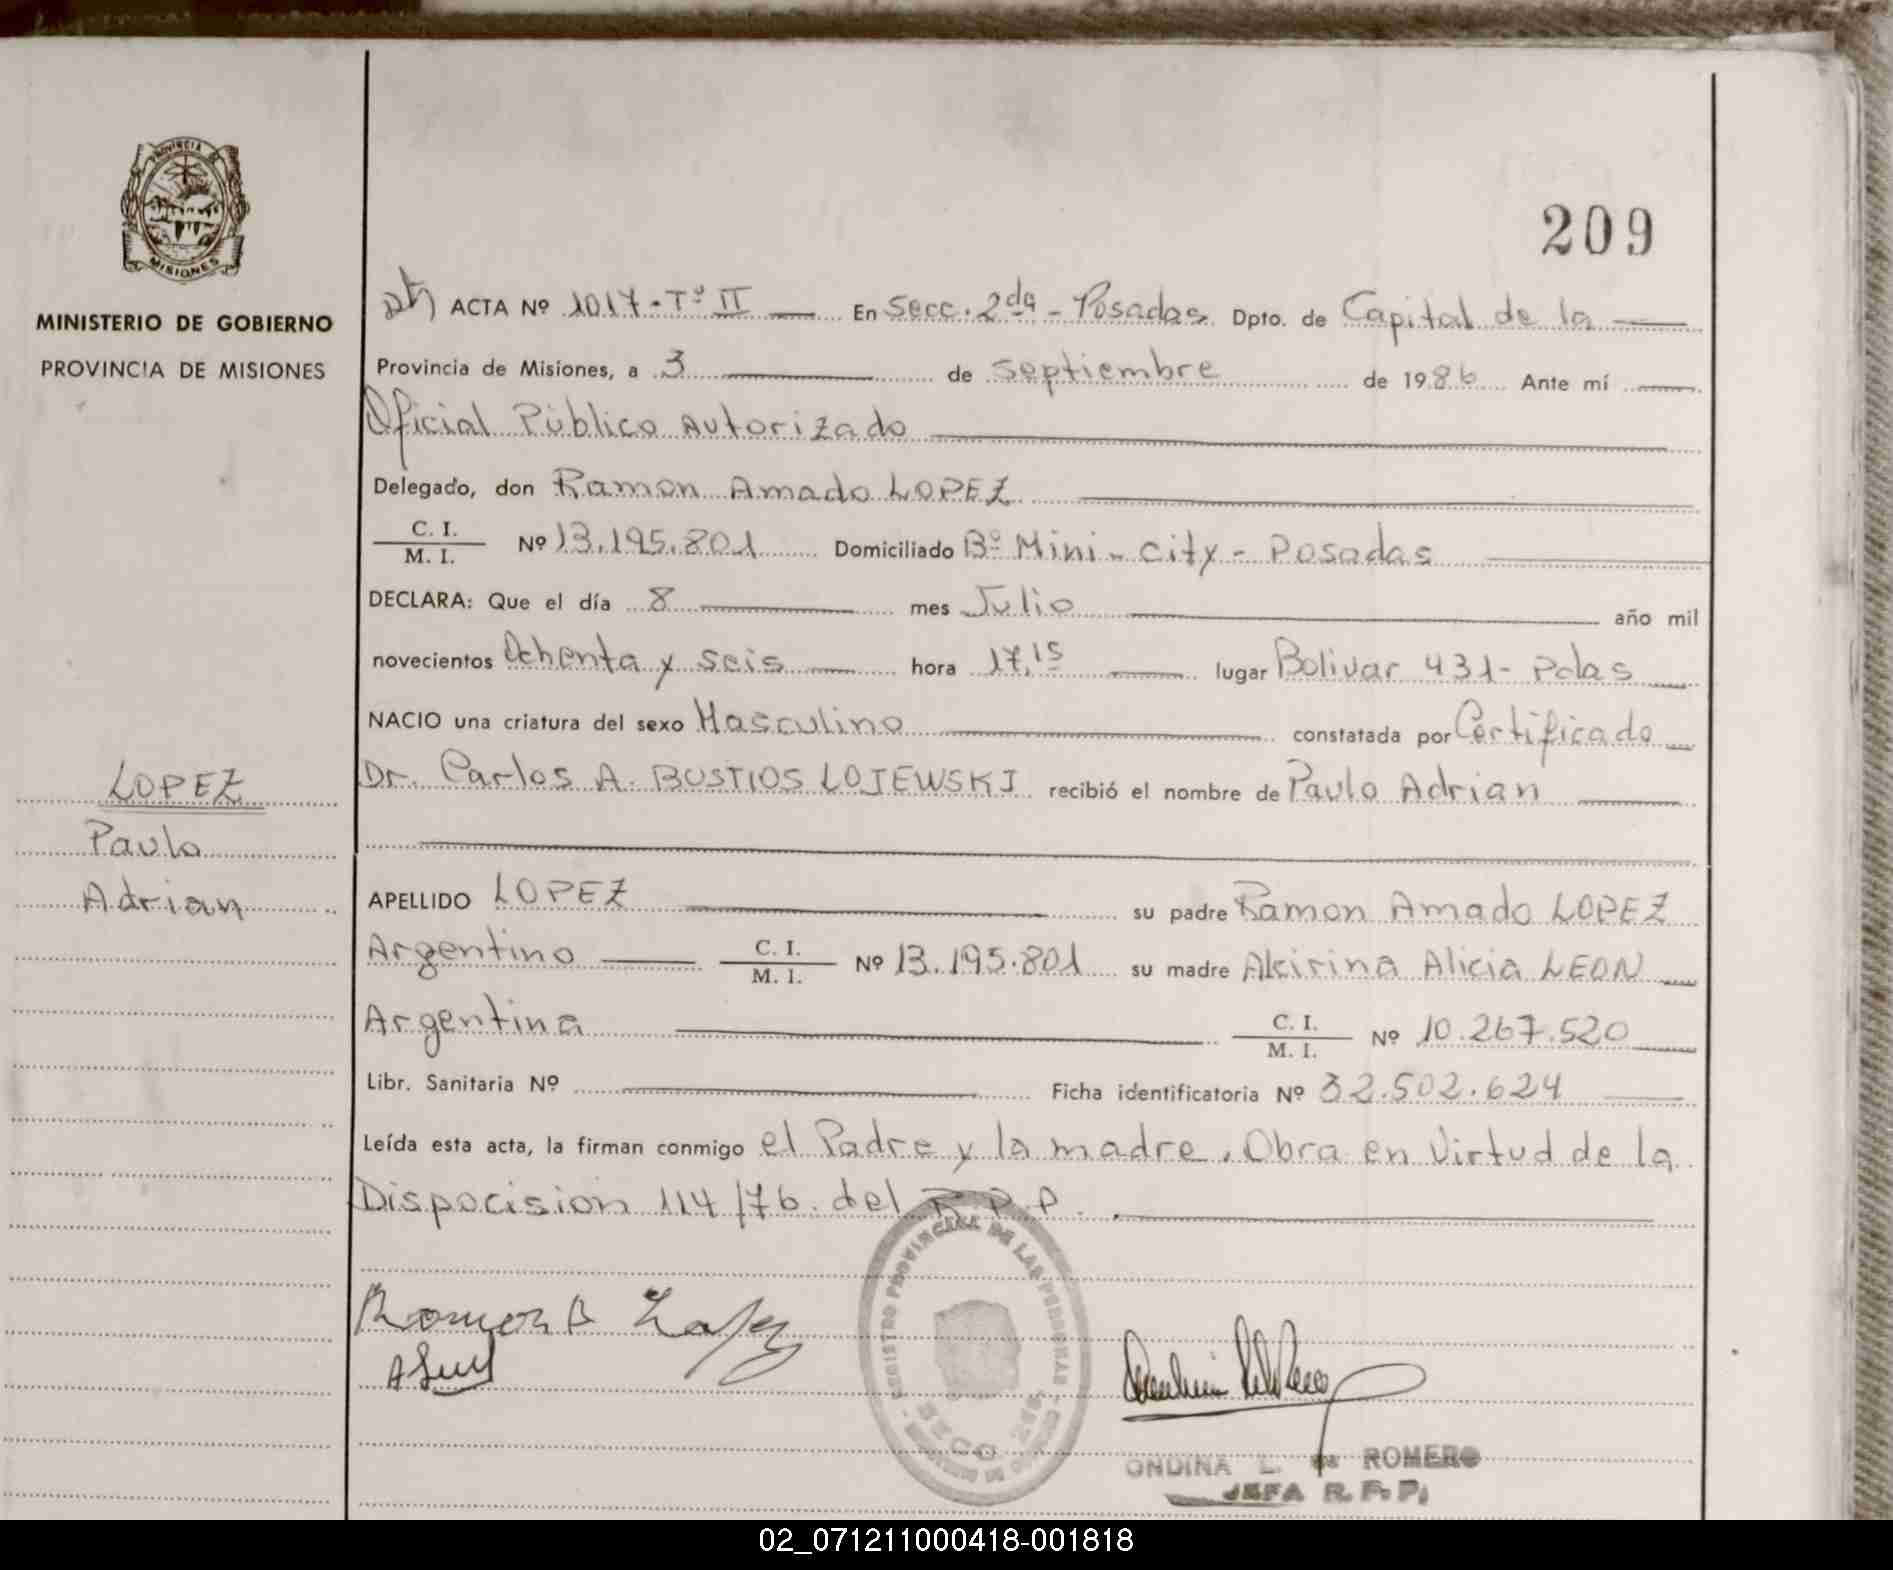 PROVINCIA DE
MISIONES
MINISTERIO DE GOBIERNO
PROVINCIA DE MISIONES
LOPEZ
Paulo
Adrian
209
ACTA Nº 1017 - Tº II En Secc. 2da - Posadas Dpto. de Capital de la
Provincia de Misiones, a 3 de septiembre de 1986 Ante mí
Oficial Público Autorizado
Delegado, don Ramon Amado LOPEZ
C. I.
M. I. Nº 13.195.801 Domiciliado Bº Mini-city - Posadas
DECLARA: Que el día 8 mes Julio año mil
novecientos Ochenta y seis hora 17,15 lugar Bolivar 431 - Pdas
NACIO una criatura del sexo Masculino constatada por Certificado
Dr. Carlos A. BUSTIOS LOJEWSKI recibió el nombre de Paulo Adrian
APELLIDO LOPEZ su padre Ramon Amado LOPEZ
Argentino C. I. M. I. Nº 13.195.801 su madre Akirina Alicia LEON
Argentina C. I. M. I. Nº 10.267.520
Libr. Sanitaria Nº Ficha identificatoria Nº 32.502.624
Leída esta acta, la firman conmigo el Padre y la madre. Obra en Virtud de la
Dispocision 114/76. del R.P.P.
REGISTRO PROVINCIAL DE LAS PERSONAS
SECC. 2da.
Ramon A Lopez
ONDINA L. de ROMERO
JEFA R. P. P.
02_071211000418-001818